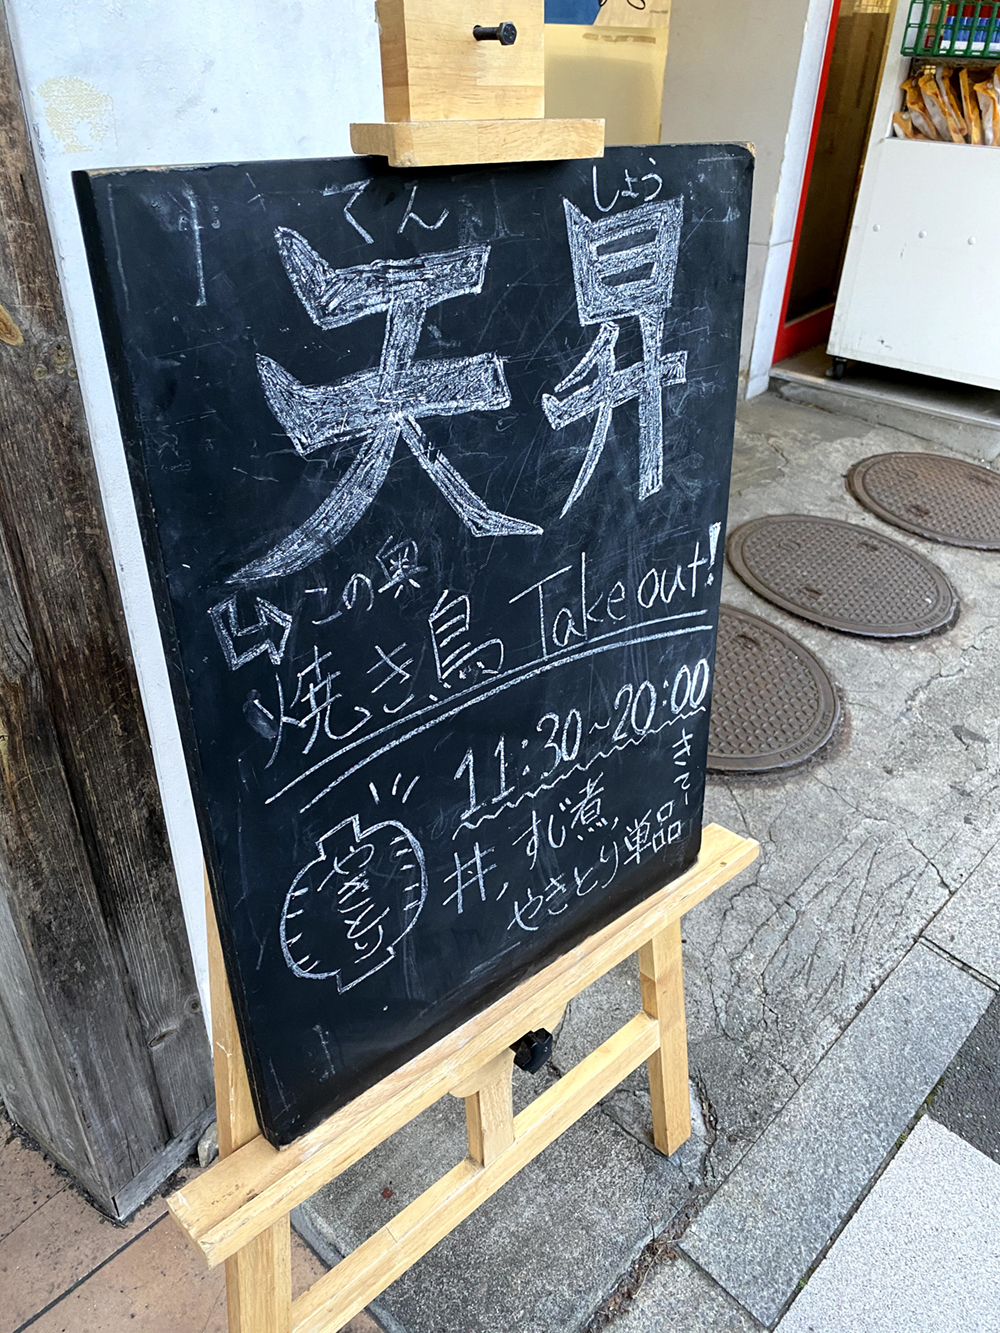 てんしょう
天昇
この奥
焼き鳥 Take out!
11:30~20:00
丼, すじ煮,
やきとり単品
やきとり